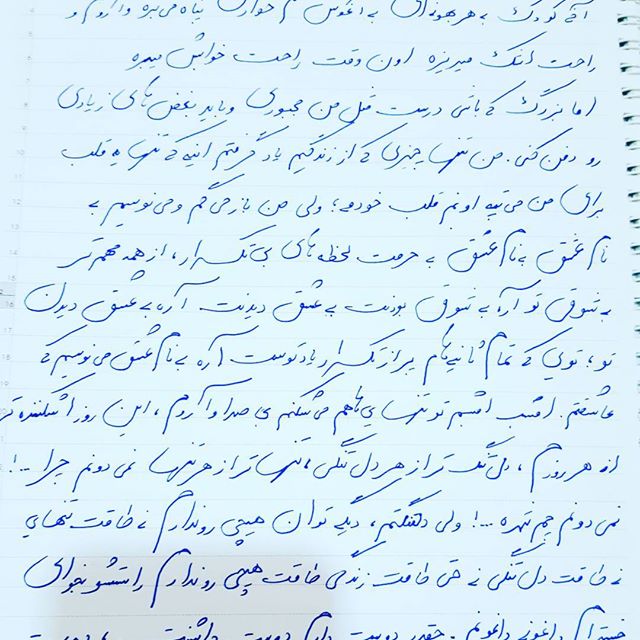 اگه کودک به هر بهونه‌ای به آغوش پناه می‌بره و آروم و
راحت اشک میریزه اون وقت راحت خوابش میبره
اما بزرگ که باشی درست مثل من مجبوری و باید بغض های زیادی
رو دفن کنی. من تنها چیزی که از زندگیم یاد گرفتم اینه که تنها یه قلب
برای من می‌تپه اونم قلب خودمه؛ ولی من باز می‌گم و می‌نویسم به
نام عشق به نام عشق به حرمت لحظه های بی تکرار، از همه مهم تر
به شوق تو آره به شوق بودنت به عشق دیدنت آره به عشق دیدن
تو؛ تویی که تمام ثانیه‌هام پر از تکرار یاد توست آره به نام عشق می‌نویسم که
عاشقتم. امشب تو تنهایی‌هام می‌شکنم بی صدا و آروم، این روزا شکننده تر
از هر روزم، دل تنگ تر از هر دل تنگی، تنها تر از هر تنها نمی دونم چرا ...!
نمی دونم چم شده ...! ولی دلتنگتم، دیگه توان هیچی رو ندارم نه طاقت تنهایی
نه طاقت دل تنگی نه حتی طاقت زندگی طاقت هیچی رو ندارم راستشو بخوای
خسته‌ام داغونم داغونم. چقدر دوست دارم دوست داشتنت